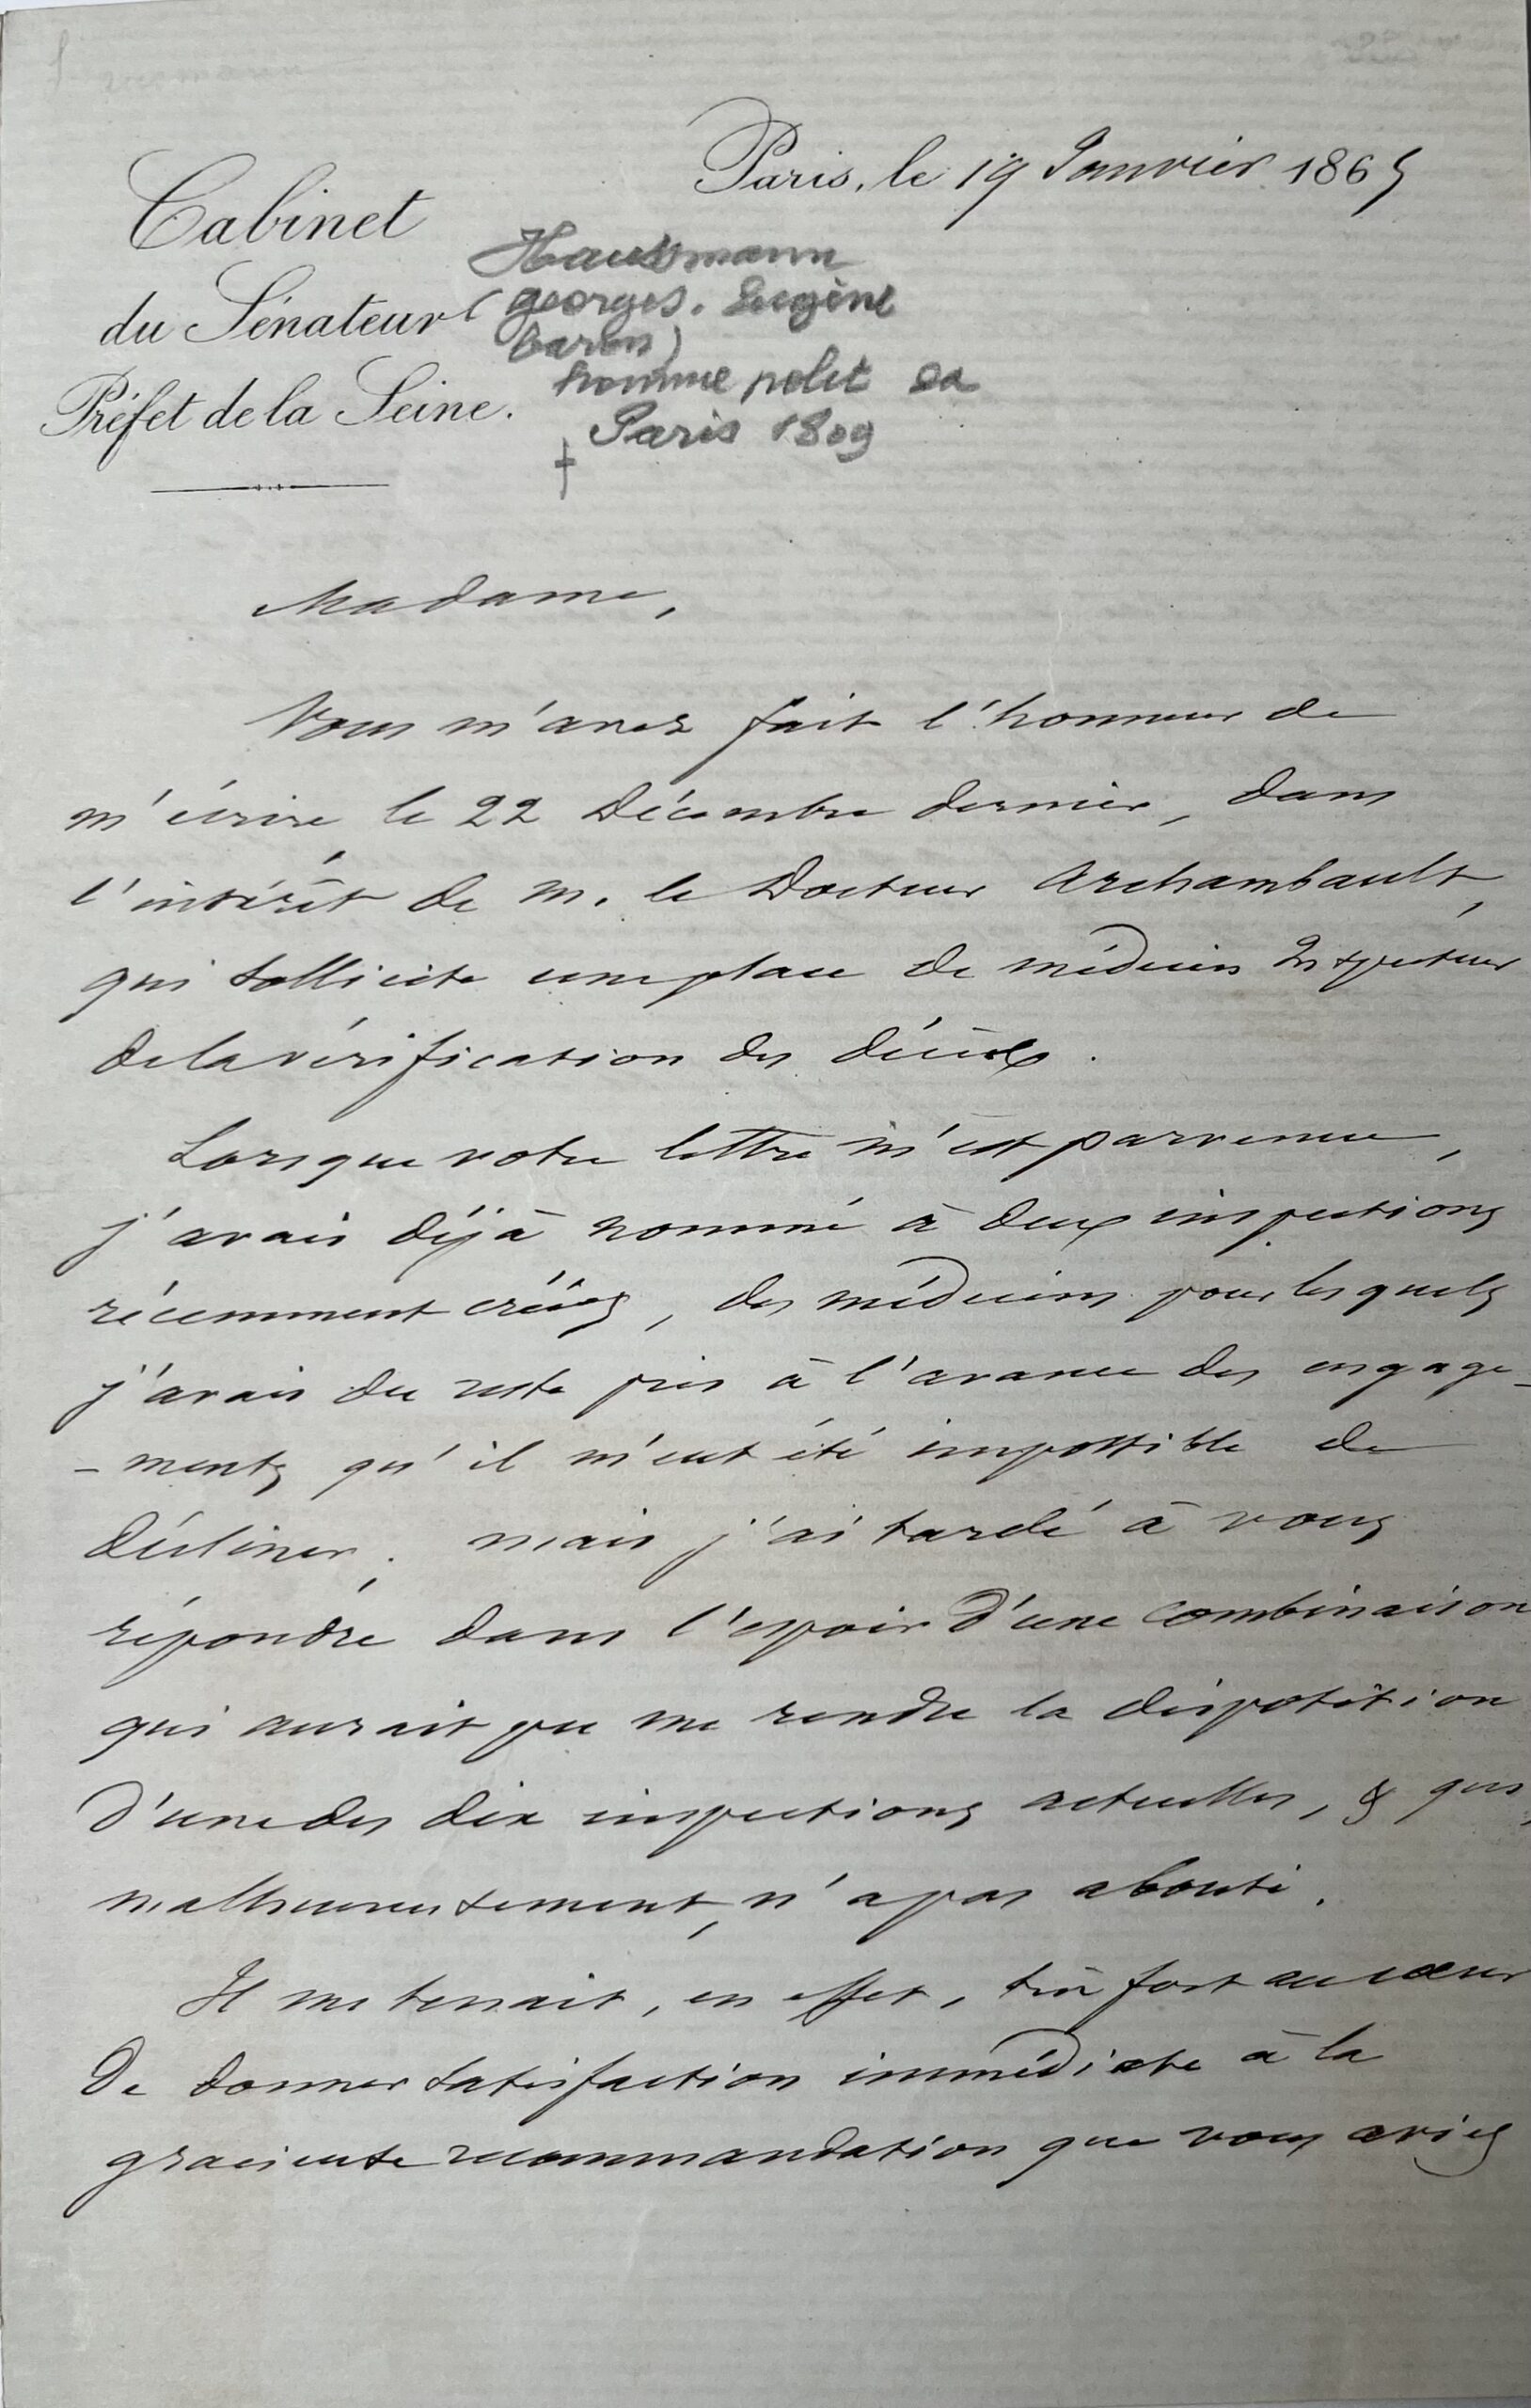 Paris, le 19 Janvier 1865
Cabinet
du Sénateur
Préfet de la Seine.
Haussmann
(georges. Eugène
baron)
homme polit
Paris 1809
†
Madame,
Vous m'avez fait l'honneur de
m'écrire, le 22 Décembre dernier, dans
l'intérêt de M. le Docteur Archambault,
qui sollicite une place de médecin Inspecteur
de la vérification des décès.
Lorsque votre lettre m'est parvenue,
j'avais déjà nommé à deux inspections
récemment créées, des médecins pour lesquels
j'avais du reste pris à l'avance des engage-
-ments qu'il m'eut été impossible de
décliner; mais j'ai tardé à vous
répondre dans l'espoir d'une combinaison
qui aurait pu me rendre la disposition
d'une des dix inspections actuelles, & qui,
malheureusement, n'a pas abouti.
Il me tenait, en effet, très fort au cœur
de donner satisfaction immédiate à la
gracieuse recommandation que vous aviez